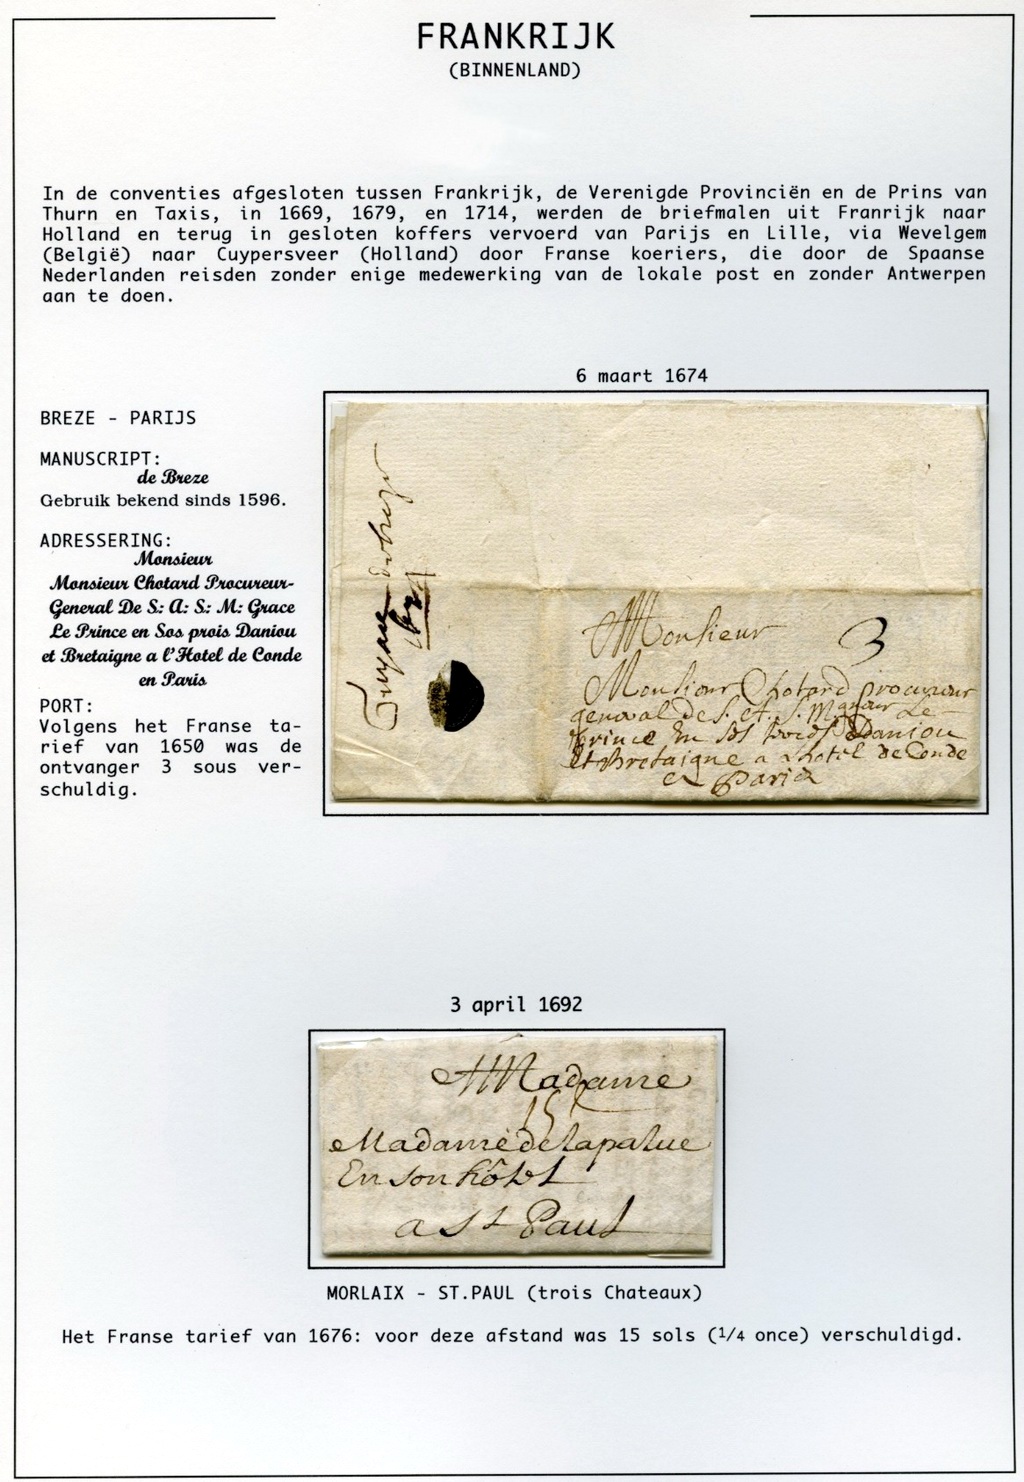 FRANKRIJK
(BINNENLAND)
In de conventies afgesloten tussen Frankrijk, de Verenigde Provinciën en de Prins van
Thurn en Taxis, in 1669, 1679, en 1714, werden de briefmalen uit Franrijk naar
Holland en terug in gesloten koffers vervoerd van Parijs en Lille, via Wevelgem
(België) naar Cuypersveer (Holland) door Franse koeriers, die door de Spaanse
Nederlanden reisden zonder enige medewerking van de lokale post en zonder Antwerpen
aan te doen.
6 maart 1674
BREZE - PARIJS
MANUSCRIPT:
de Breze
Gebruik bekend sinds 1596.
ADRESSERING:
Monsieur
Monsieur Chotard Procureur-
General De S: A: S: M: Grace
Le Prince en Sos prois Daniou
et Bretaigne a l'Hotel de Conde
en Paris
PORT:
Volgens het Franse ta-
rief van 1650 was de
ontvanger 3 sous ver-
schuldig.
Monsieur
3
Monsieur Chotard procureur
general de S. A. S. Le
prince En Daniou
et bretaigne a Lhotel de Conde
a Paris
3 april 1692
A Madame
15
Madame de lapalue
En son hôtel
a St Paul
MORLAIX - ST.PAUL (trois Chateaux)
Het Franse tarief van 1676: voor deze afstand was 15 sols (1/4 once) verschuldigd.